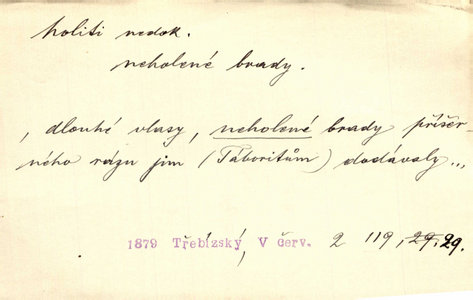 holiti nedok.
neholené brady.
, dlouhé vlasy, neholené brady příšer-
ného rázu jim (Táboritům) dodávaly...
1879 Třebízský, V červ. 2 119, 29, 29.